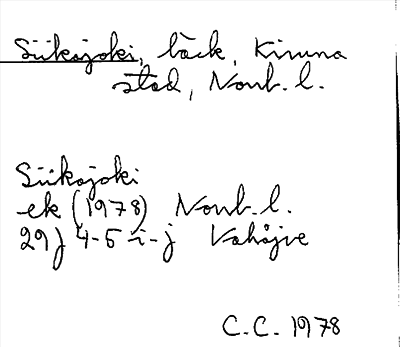 Siikajoki, bäck, Kiruna
stad, Norrb. l.
Siikajoki
ek (1978) Norrb. l.
29J 4-5 i-j Vahåjve
C.C. 1978